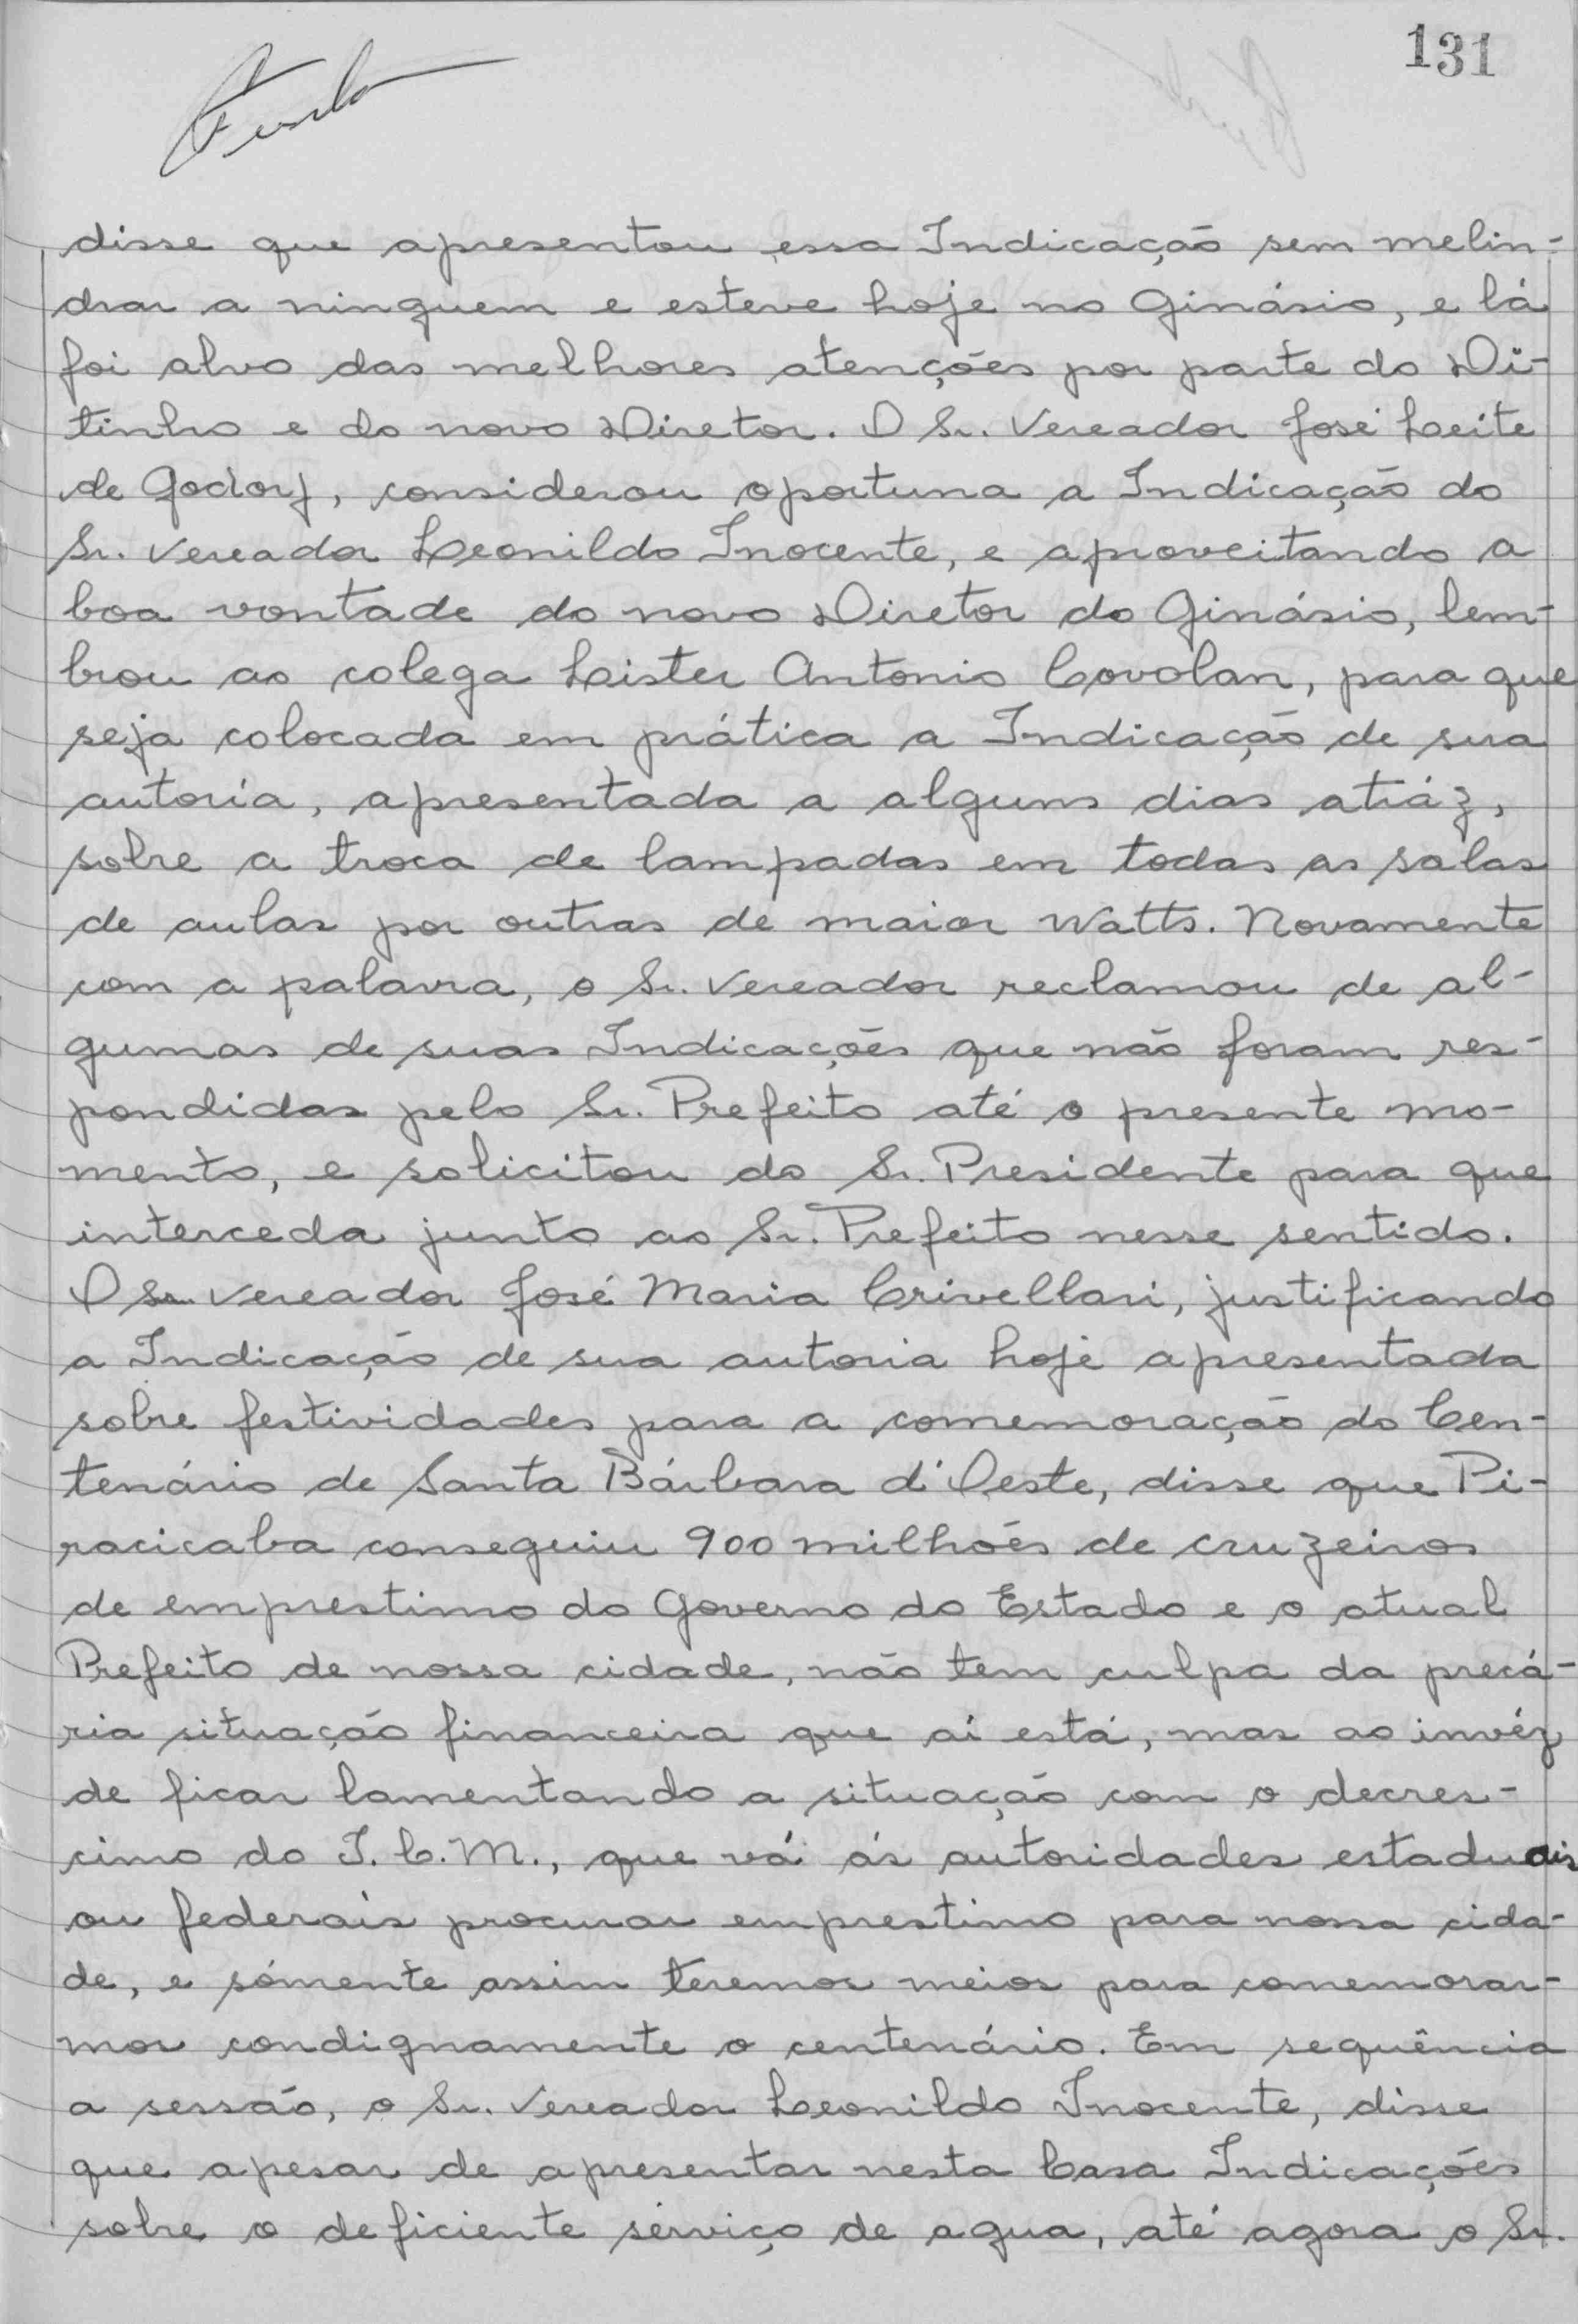 131
disse que apresentou essa Indicação sem melin-
drar a ninguem e esteve hoje no Ginásio, e lá
foi alvo das melhores atenções por parte do Di-
tinho e do novo Diretor. O Sr. Vereador José Leite
de Godoy, considerou oportuna a Indicação do
Sr. Vereador Leonildo Inocente, e aproveitando a
boa vontade do novo Diretor do Ginásio, lem-
brou ao colega Lister Antonio Covolan, para que
seja colocada em prática a Indicação de sua
autoria, apresentada a alguns dias atráz,
sobre a troca de lampadas em todas as salas
de aulas por outras de maior Watts. Novamente
com a palavra, o Sr. Vereador reclamou de al-
gumas de suas Indicações que não foram res-
pondidas pelo Sr. Prefeito até o presente mo-
mento, e solicitou do Sr. Presidente para que
interceda junto ao Sr. Prefeito nesse sentido.
O Sr. Vereador José Maria Crivellari, justificando
a Indicação de sua autoria hoje apresentada
sobre festividades para a comemoração do Cen-
tenário de Santa Bárbara d'Oeste, disse que Pi-
racicaba conseguiu 900 milhões de cruzeiros
de emprestimo do Governo do Estado e o atual
Prefeito de nossa cidade, não tem culpa da precá-
ria situação financeira que aí está, mas ao invéz
de ficar lamentando a situação com o decres-
cimo do I.C.M., que vá ás autoridades estaduais
ou federais procurar emprestimo para nossa cida-
de, e sómente assim teremos meios para comemorar-
mos condignamente o centenário. Em sequência
a sessão, o Sr. Vereador Leonildo Inocente, disse
que apesar de apresentar nesta Casa Indicações
sobre o deficiente serviço de agua, até agora o Sr.